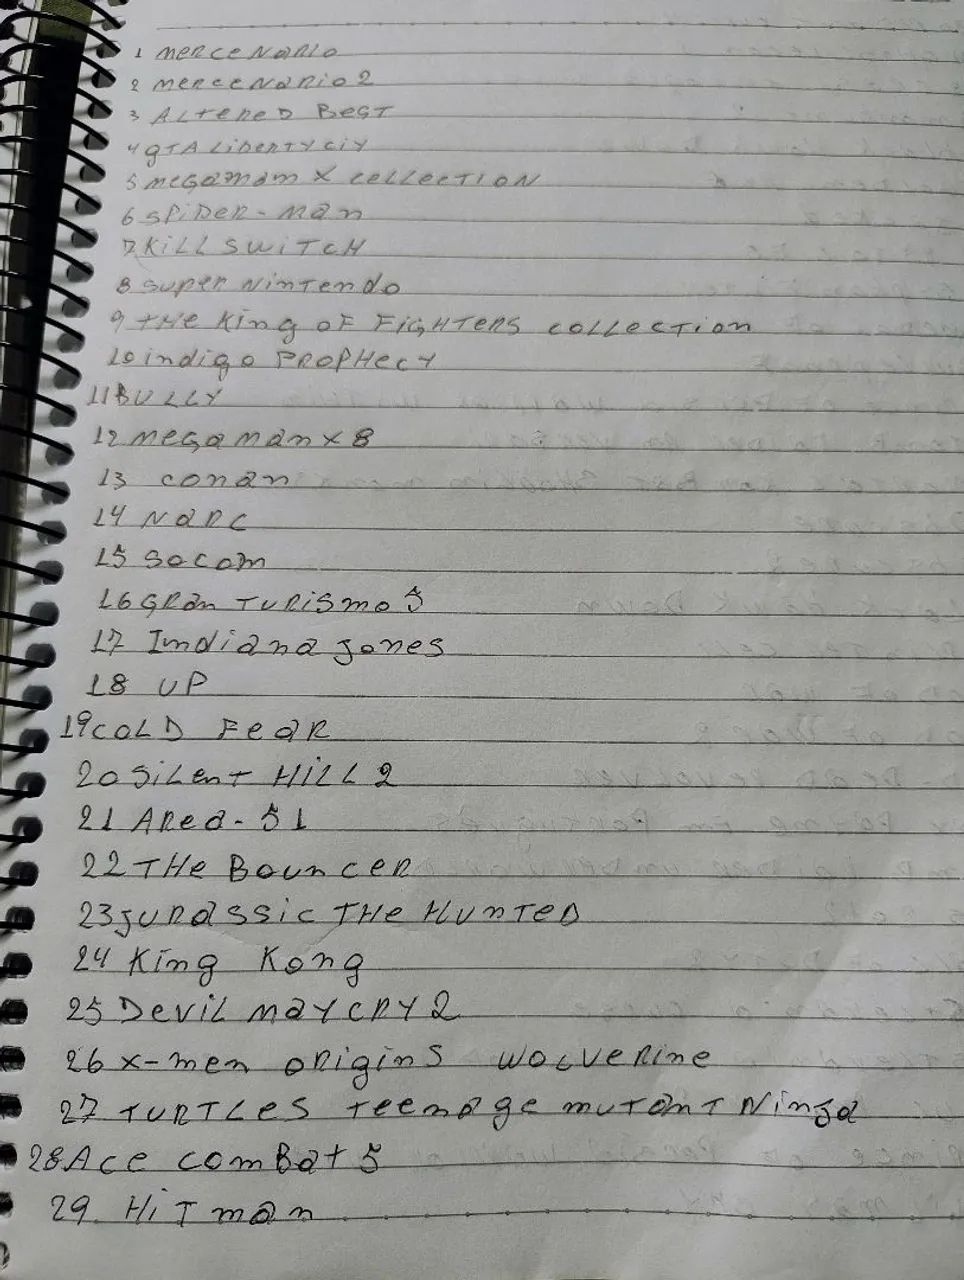 1 mercenario
2 mercenario 2
3 Altered Best
4 gTA Liberty ciy
5 megamam X collection
6 spider-man
7 Kill switch
8 super Nintendo
9 the King of Fighters collection
10 indigo Prophecy
11 Bully
12 megaman x 8
13 conan
14 Narc
15 socom
16 gran Turismo 5
17 Indiana jones
18 UP
19 cold Fear
20 Silent Hill 2
21 Area-51
22 The Bouncer
23 jurassic The Hunted
24 King Kong
25 Devil may cry 2
26 x-men origins wolverine
27 Turtles teenage mutant Ninja
28 Ace combat 5
29. Hitman